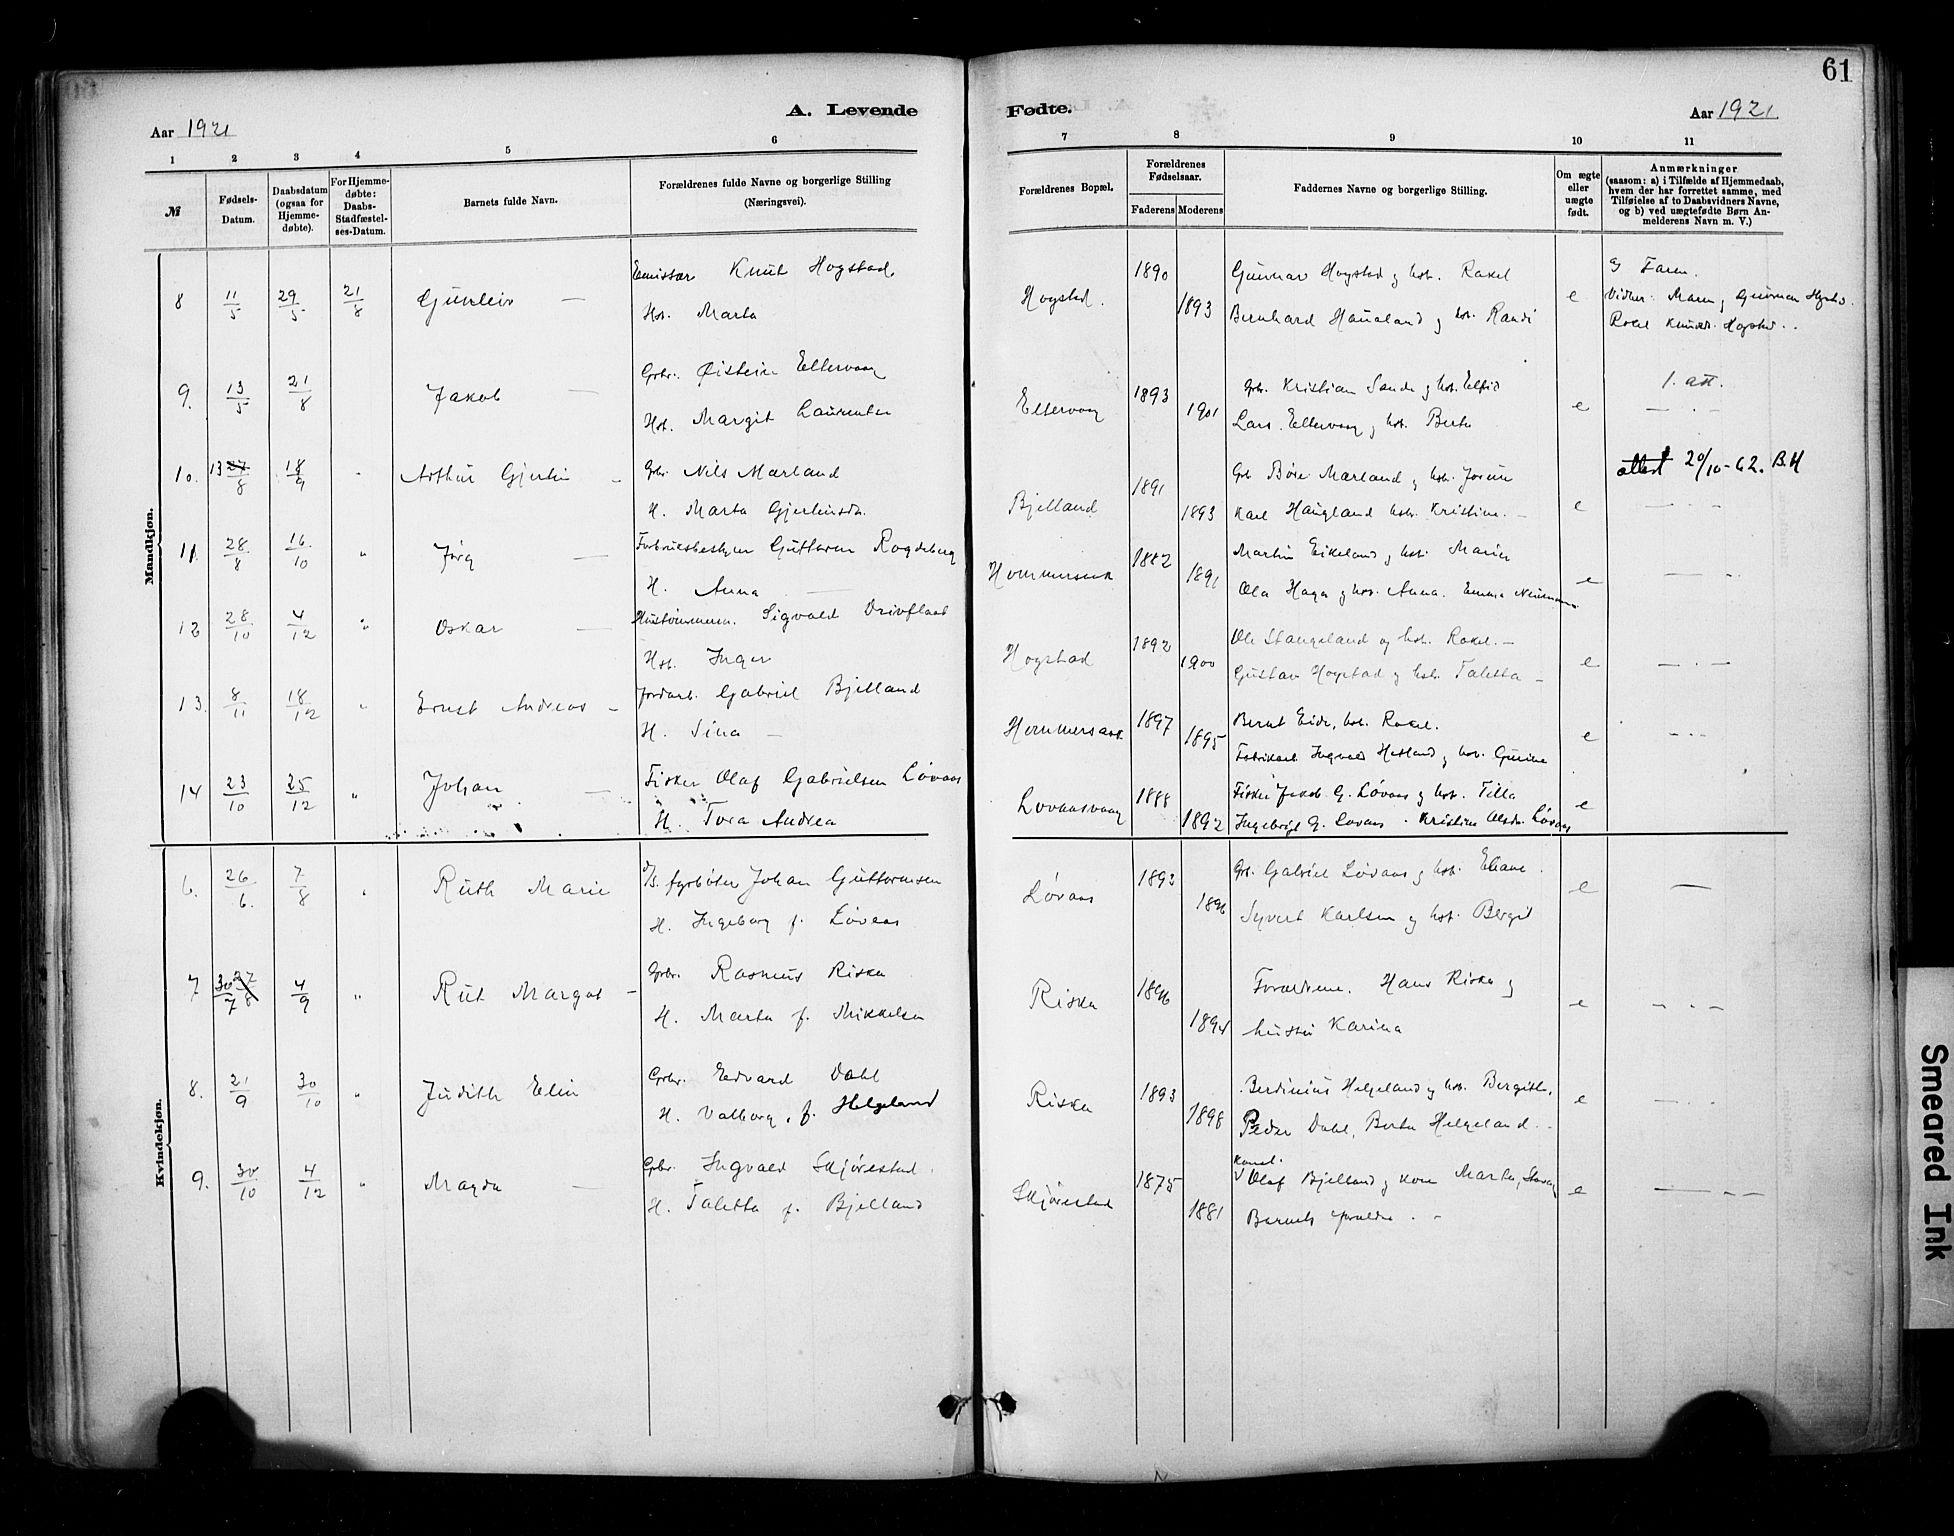 61
A. Levende Fødte.
Aar 1921 Aar 1921
1 2 3 4 5 6 7 8 9 10 11
№
Fødsels-Datum.
Daabsdatum (ogsaa for Hjemme-døbte).
For Hjemme-døbte: Daabs-Stadfæstel-ses-Datum.
Barnets fulde Navn.
Forældrenes fulde Navne og borgerlige Stilling (Næringsvei).
Forældrenes Bopæl.
Forældrenes Fødselsaar.
Faderens Moderens
Faddernes Navne og borgerlige Stilling.
Om ægte eller uægte født.
Anmærkninger
(saasom: a) i Tilfælde af Hjemmedaab,
hvem der har forrettet samme, med
Tilføielse af to Daabsvidners Navne,
og b) ved uægtefødte Børn An-
melderens Navn m. V.)
Mandkjøn.
8 11/5 29/5 21/8 Gunleiv — Emissær Knut Hogstad Hogstad. 1890 Gunnar Hogstad og hst. Rakel e
Hst. Marta 1893 Bernhard Haualand og hst. Randi
9. 13/5 21/8 Jakob — Grbr. Øistein Eltervaag Eltervaag 1893 Grbr. Kristian Sande og hst. e 1. att.
Hst. Margit 1901 Lars Eltervaag og hst. Berta — . —
10. 13 27/8 18/9 " Arthur Gjertin — Grbr. Nils Marland Bjelland 1891 Grbr. Marland og hst. e attest 20/10-62. B.H
H. Marta 1893 Karl Haugland hst. Kristine. — — . —
11. 28/8 16/10 " Jørg — Guttorm Rogdeberg Hommersaak 1882 Martin Eikeland og hst. Marie e —
H. Anna — 1891 Ola Haga og hst. Anna. Emma
12 28/10 4/12 " Oskar — Sigvald Drivflaat Hogstad 1892 Ole Stangeland og hst. Rakel. — e — . —
Hst. Inger 1900 Gustav Hogstad og hst. Taletta —
13. 8/11 18/12 " Ernst Andreas — Jordarb. Gabriel Bjelland Hommersaak 1897 Bernt Eide, hst. Rakel. e — . —
H. Sina — 1895 Fabrikarb. Ingvald Hetland og hst. Gurine
14 23/10 25/12 " Johan — Fisker Olaf Gabrielsen Løvaas Lovaasvaag 1888 Fisker Jakob G. Løvaas og hst. Tilla e
H. Tora Andrea 1892 Ingebrigt G. Løvaas. Kristine Løvaas
Kvindekjøn.
6. 26/6. 7/8 " Ruth Marie D/S. fyrbøter Johan Guttormsen Løvaas 1893 Grb. Gabriel Løvaas og hst. Eliane. e —
H. Ingeborg f. Løvaas 1896 Syvert Karlsen og hst. Bergit
7 30/7 27/8 4/9 " Rut Margot — Grbr. Rasmus Riska Riska 1896 Forældrene. Hans Riska og e — . —
H. Marta f. Mikkelsen 1894 hustru Karina
8. 21/9 30/10 " Judith Elin Grbr. Edvard Dahl Riska 1893 Berdinius Helgeland og hst. Bergitte. e — . —
H. Valborg. f. Helgeland 1898 Peder Dahl, Berta Helgeland. —
9. 30/10 4/12 " Magda — Grbr. Ingvald Skjørestad. Skjørestad 1875 Olaf Bjelland og kone Marta, e — — —
H. Taletta f. Bjelland 1881 Barnets forældre. —
Smeared Ink